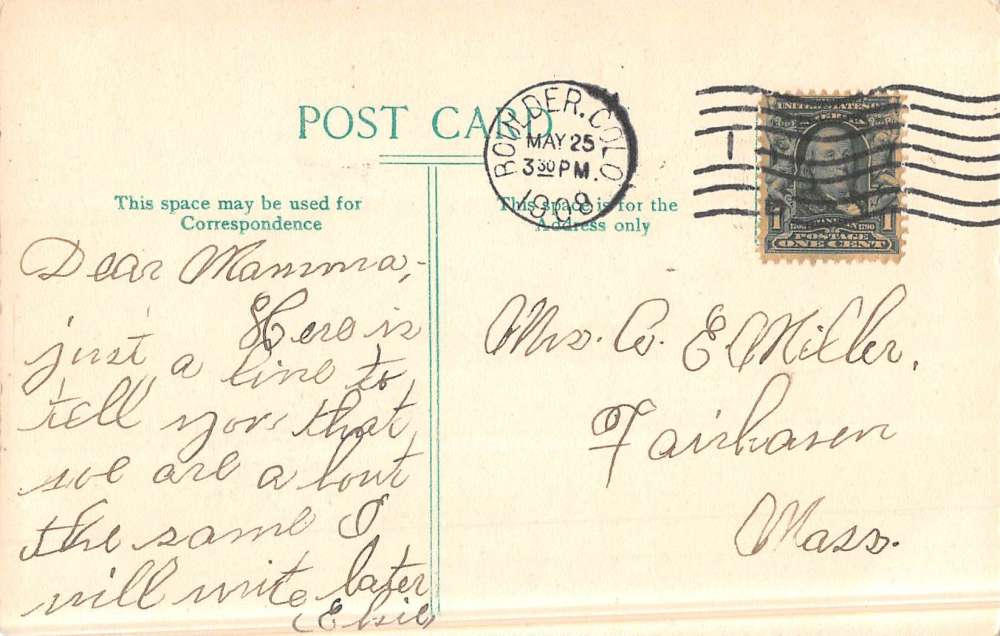 POST CARD
BOULDER. COLO.
MAY 25
3 30 PM.
1908
1
UNITED STATES OF AMERICA
1 1
POSTAGE
ONE CENT
This space may be used for
Correspondence
This space is for the
Address only
Dear Mamma,-
Here is
just a line to
tell you that
we are a bout
the same I
will write later
(Elsie)
Mrs. C. E Miller,
Fairhaven
Mass.